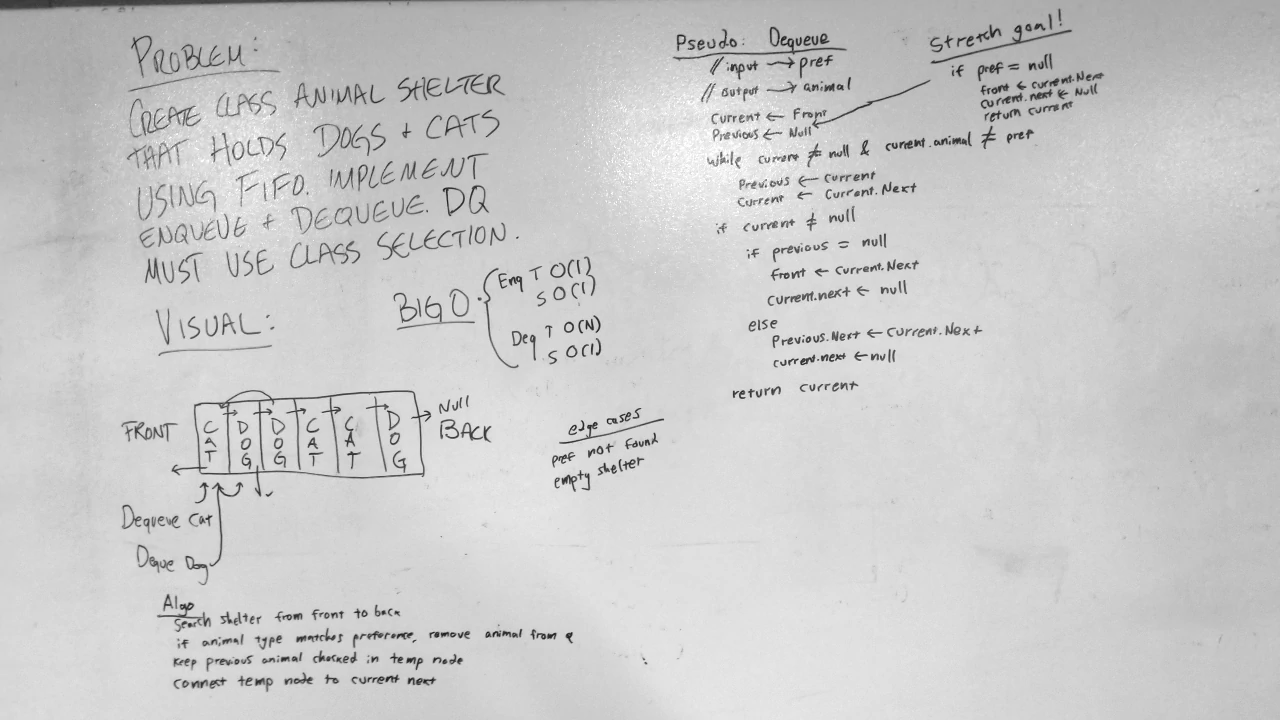 PROBLEM:
CREATE CLASS ANIMAL SHELTER
THAT HOLDS DOGS + CATS
USING FIFO. IMPLEMENT
ENQUEUE + DEQUEUE. DQ
MUST USE CLASS SELECTION.
BIG O
Enq T O(1)
S O(1)
Deq T O(N)
S O(1)
VISUAL:
FRONT
CAT
DOG
DOG
CAT
CAT
DOG
Null
BACK
Dequeue Cat
Deque Dog
edge cases
pref not found
empty shelter
Algo
Search shelter from front to back
if animal type matches preference, remove animal from q
keep previous animal checked in temp node
connect temp node to current next
Pseudo: Dequeue
// input → pref
// output → animal
Current ← Front
Previous ← Null
while current ≠ null & current.animal ≠ pref
Previous ← current
Current ← Current.Next
if current ≠ null
if previous = null
front ← current.Next
current.next ← null
else
Previous.Next ← Current.Next
current.next ← null
return current
Stretch goal!
if pref = null
front ← current.Next
current.next ← Null
return current